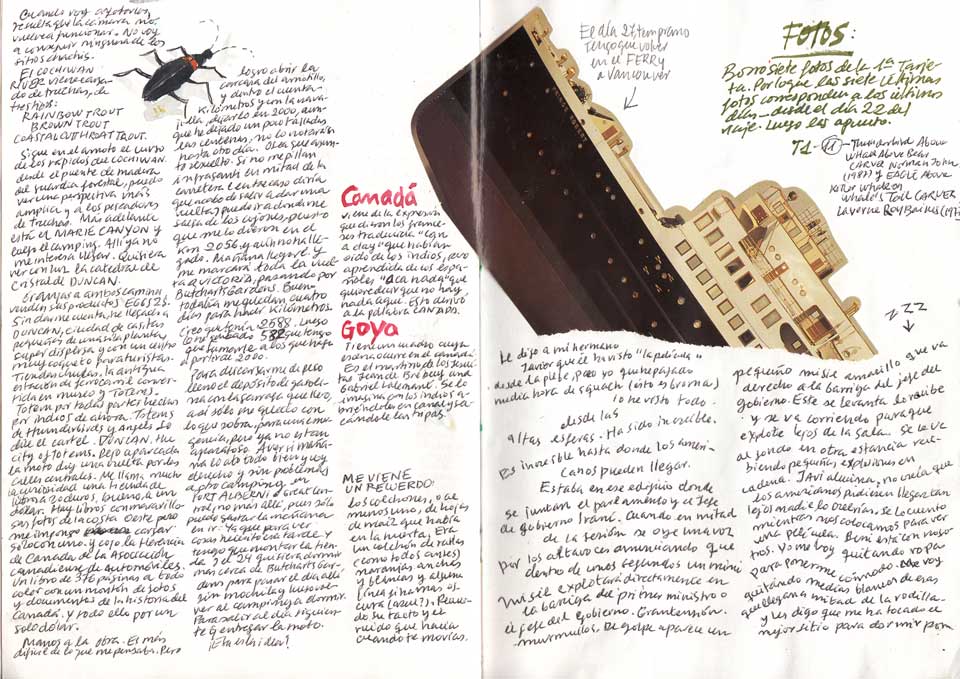 Cuando voy a fotografiar,
resulta que la cámara no
vuelve a funcionar. No voy
a conseguir ninguna de los
sitios chachis.
El COCHIWAN
RIVER viene carga-
do de truchas, de
tres tipos:
RAINBOW TROUT
BROWN TROUT
COASTAL CUTHROAT TROUT.
Sigue en el amoto el curso
de los rápidos del COCHIWAN.
desde el puente de madera
del guardia forestal, puedo
ver una perspectiva más
amplia y a los pescadores
de truchas. Más adelante
está el MARIE CANYON y
luego el camping. Allí ya no
me interesa llegar. Quisiera
ver con luz la catedral de
cristal de DUNCAN.
Granjas a ambos camino,
venden sus productos EGGS 2$.
Sin darme cuenta, he llegado a
DUNCAN, ciudad de casitas
pequeñas de una sola planta,
super dispersa y con un centro
muy coqueto para turistas.
Tiendas chulas, la antigua
estación de ferrocarril conver-
tida en museo y totems.
Totem por todas partes hechos
por indios de ahora. Totems
de thunderbirds y Angels. Lo
dice el cartel. DUNCAN, the
city of totems. Dejo aparcada
la moto y doy una vuelta por las
calles centrales. Me llama mucho
la curiosidad una tienda de
libros a 2 duros, bueno, a un
dólar. Hay libros con maravillo-
sas fotos de la costa Oeste pero
me impongo cargar
solo con uno. y cojo la Herencia
de Canada de la Asociación
canadiense de automóviles.
Un libro de 376 páginas a todo
color con un montón de fotos
y documentos de la historia del
Canadá. y todo ello por un
solo dólar.
Manos a la obra. Es más
difícil de lo que me pensaba. Pero
logro abrir la
carcasa del amotillo,
y dentro el cuenta-
kilómetros y con la nava-
jilla, dejarlo en 2000, aun-
que he dejado un poco talladas
las centenas, no lo notarán
hasta otro día. Otra que asun-
to resuelto. Si no me pillan
infraganti en mitad de la
carretera (en tres caso diría
que acabo de salir a dar una
vuelta) puedo ir a donde me
salga de los cojones, puesto
que me lo dieron en el
km 2056 y aún no ha lle-
gado. Mañana llegaré y
me marcará toda la vuel-
ta a VICTORIA, pasando por
Butcharts Gardens. Buen-
todavía me quedan cuatro
días para hacer kilómetros.
Creo que tenía 2588. Luego
lo he pensado 532 que tengo
que sumarle a los que haga
al partir de 2000.
Para aligerarme de peso
lleno el depósito de gasoli-
na con la garrafa que llevo,
así sólo me quedo con
lo que sobra, para una emer-
gencia, pero ya no es tan
aparatoso. A ver si maña-
na lo ato todo bien y voy
derecho y sin problemas,
al pto camping, en
PORT ALBERNI o Great Cen-
tral, no más allá, pues sólo
puedo gastar la mañana
en ir. Ya que para ver
cosas necesito la tarde y
tengo que montar la tien-
da. Del 24 quisiera dormir
más cerca de Butcharts Gar-
dens para pasar el día allí
sin mochila y luego vol-
ver al camping a dormir.
Para salir al día siguien-
te y entregar la moto.
¡Esta es la idea!
Canadá
viene de la expresión
que dieron los france-
ses traducía "Can
a day" que habían
oído de los indios, pero
aprendida de los espa-
ñoles, "Acá nada" que
quiere decir que no hay
nada aquí. Esto derivó
a la palabra CANADA.
Goya
Tiene un cuadro cuya
escena ocurre en el Canadá
Es el martirio de los jesui-
tas Jean de Brébeuf and
Gabriel Lalemant. Se lo
imagina con los indios a-
briéndole en canal y sa-
cándole las tripas.
ME VIENE
UN RECUERDO:
Los colchones, o al
menos uno, de hojas
de maíz que había
en la huerta. Era
un colchón de rallas
(como todos antes)
naranjas anchas
y blancas y alguna
línea fina más os-
cura (¿azul?). Recuer-
do su tacto y el
ruido que hacía
cuando te movías.
El día 27, temprano
tengo que volver
en el FERRY
a VANCOUVER
FOTOS:
Borro siete fotos de la 1ª Tarje-
ta. Por lo que las siete últimas
fotos corresponden a los últimos
días - desde el día 22 del
viaje. Luego las apunto.
T1 - 11 - Thunderbird Above
Whale Above Bear
CARVER Norman John
(1987) y EAGLE Above
Killer Whale on
whale's Tail CARVER
Laverne Roy Baines (1987)
ZZZ
Le digo a mi hermano
Javier que él ha visto "la película"
desde la plebe, pero yo que he pasado
media hora de squach (esto es broma)
lo he visto todo
desde las
altas esferas. Ha sido increíble.
Es increíble hasta donde los ameri-
canos pueden llegar.
Estaba en ese edificio donde
se juntan el parlamento y el Jefe
de gobierno Iraní. Cuando en mitad
de la sesión se oye una voz
por los altavoces anunciando que
dentro de unos segundos un mini
misil explotará directamente en
la barriga del primer ministro o
el jefe del gobierno. Gran tensión.
murmullos. De golpe aparece un
pequeño misil amarillo que va
derecho a la barriga del jefe del
gobierno. Este se levanta, lo recibe
y se va corriendo para que
explote lejos de la sala. Se le ve
al fondo en otra estancia reci-
biendo pequeñas explosiones en
cadena. JAVI alucina, no creía que
los americanos pudiesen llegar tan
lejos nadie lo creería. Se lo cuento
mientras nos colocamos para ver
una película. Beni está con noso-
tros. Yo me voy quitando ropa
para ponerme cómodo. Me voy
quitando medias blancas de esas
que llegan a mitad de la rodilla
y les digo que me ha tocado el
mejor sitio para dormir pom